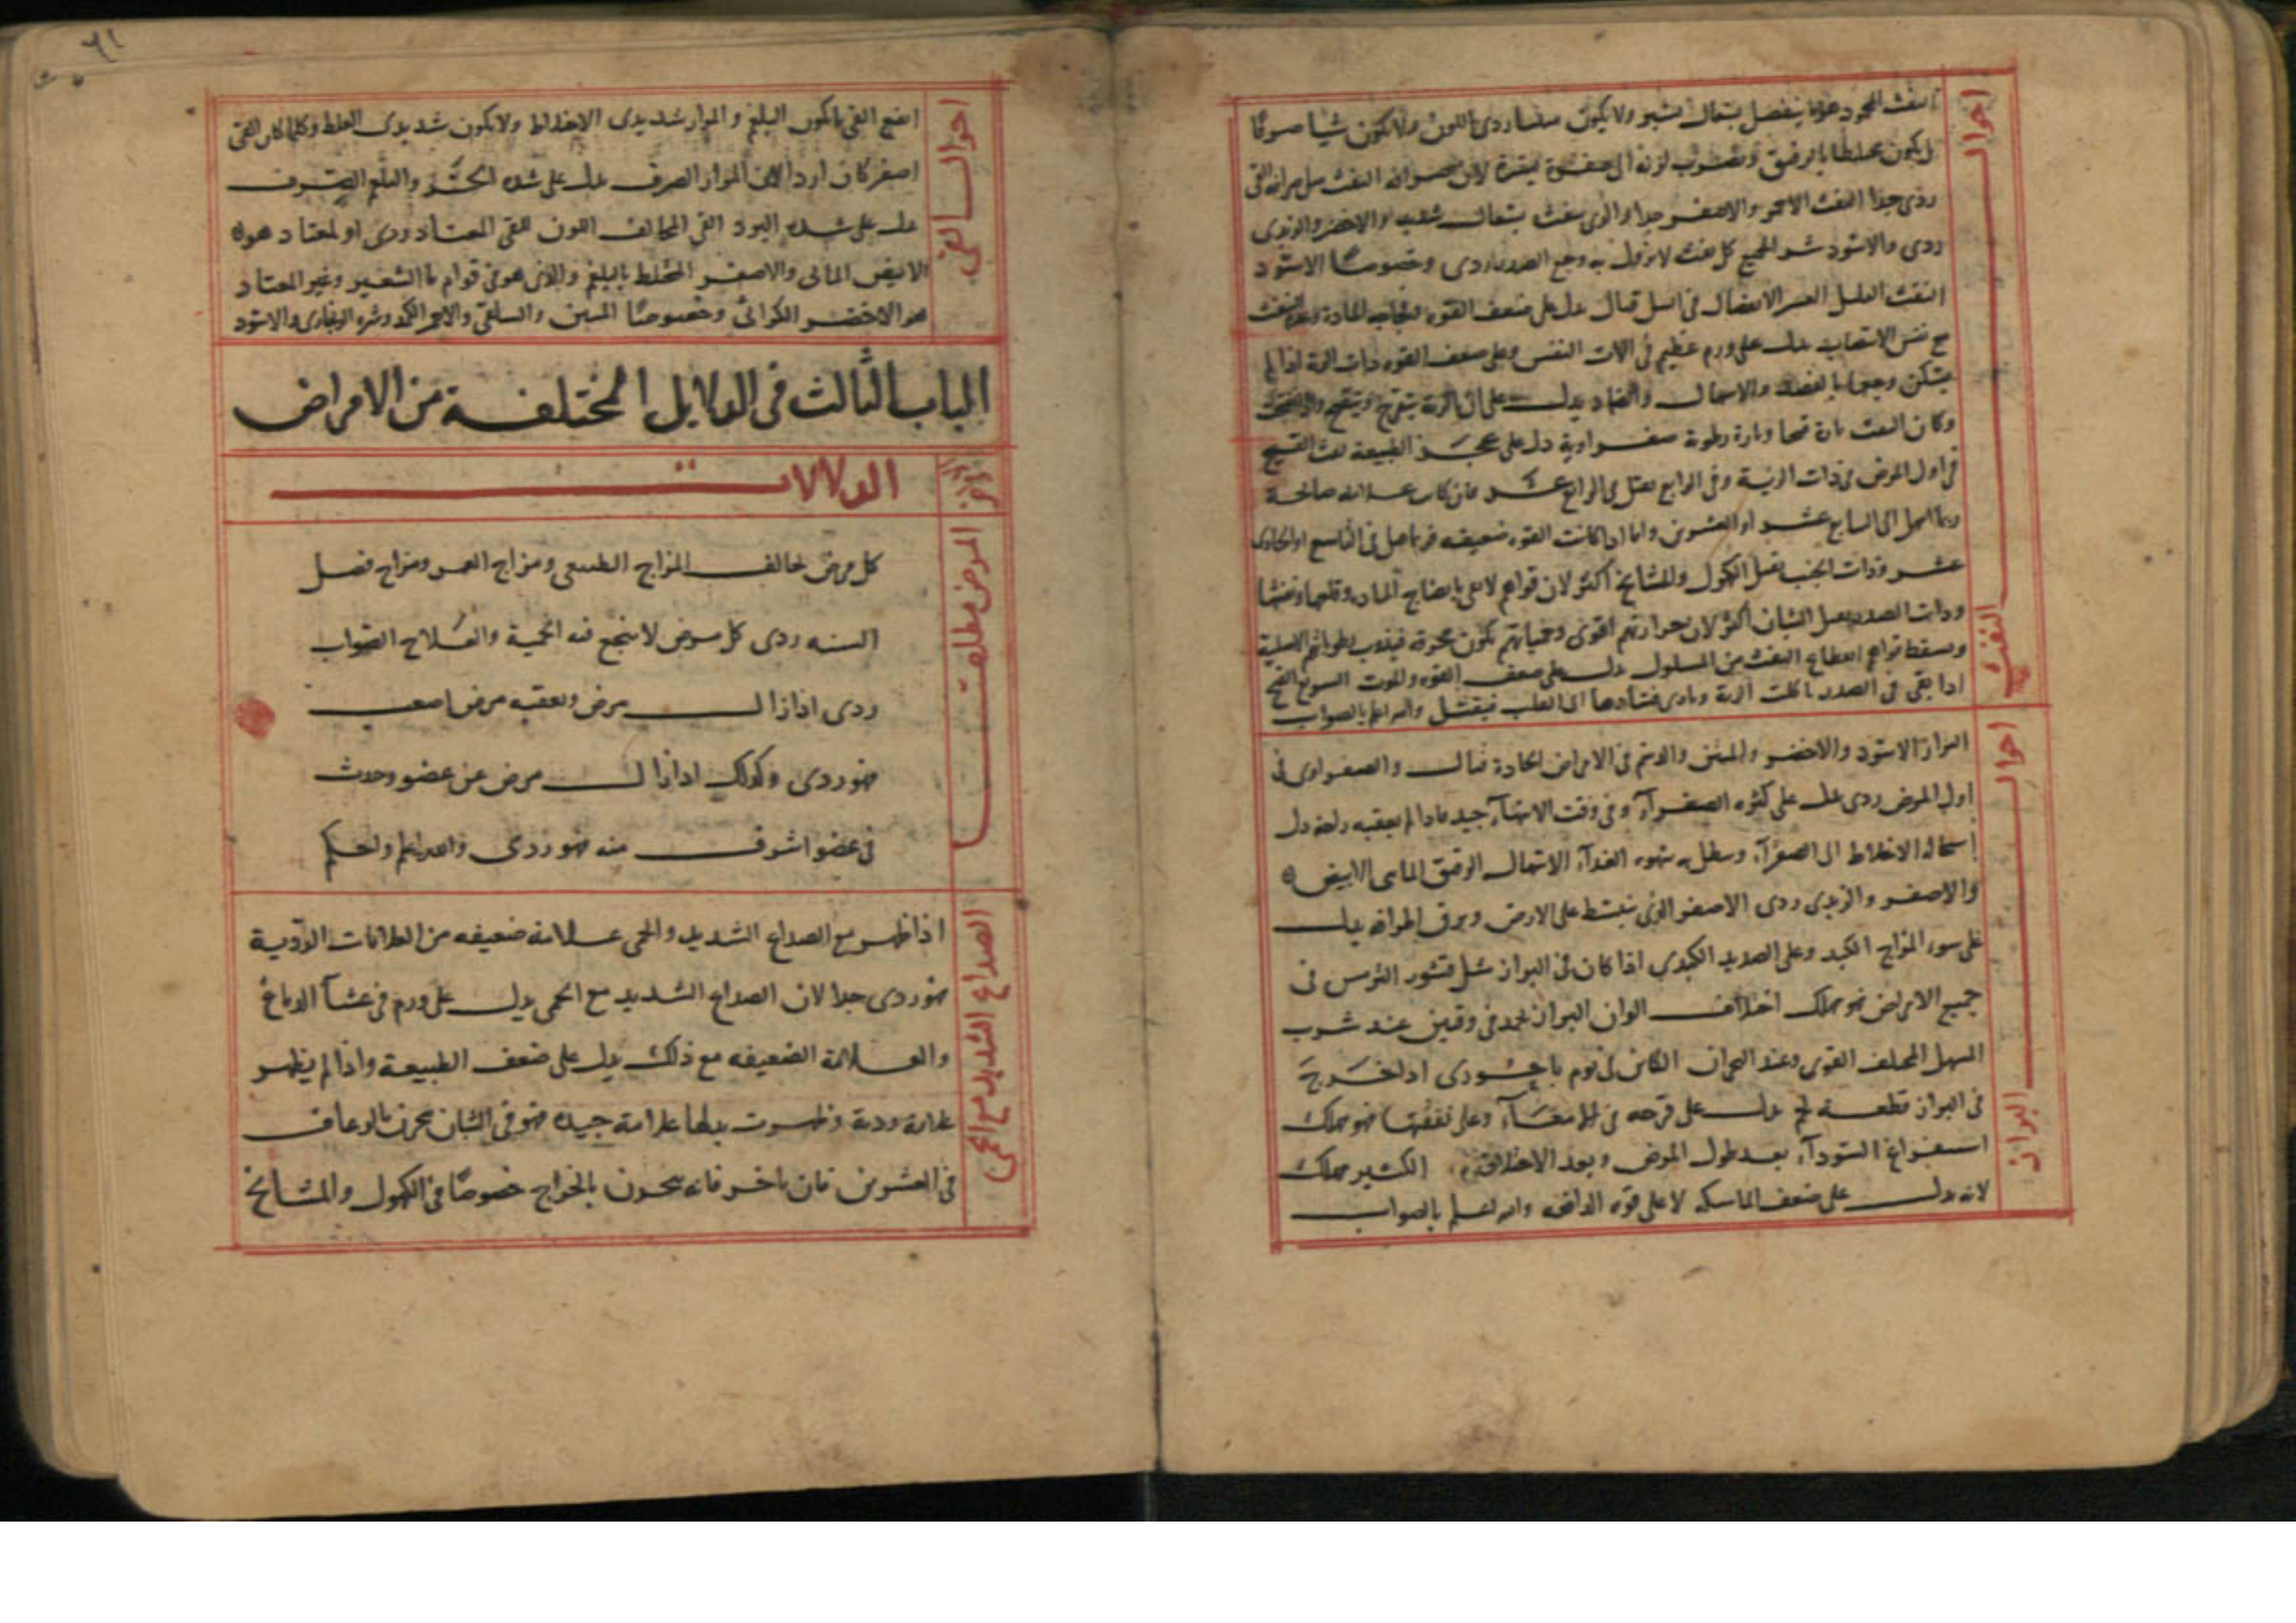 احوال النفث
النفث المحمود هو ما ينفصل بسعال يسير ولا يكون منتنا ردى اللون ولا يكون شيا صرفا
بل يكون مختلطا بالريق
ردى جدا النفث الاحمر والاصفر جدا والذى ينفث بسعال شديد والاخضر والزبدى
ردى والاسود شر الجميع كل نفث لا يزول به وجع الصدر ردى وخصوصا الاسود
النفث القليل العسر الانفصال فى السل قتال يدل على ضعف القوه
مع نفس الانتصاب يدل على ورم عظيم فى الات النفس وعلى ضعف القوه ذات الرية اذا لم
يسكن وجعها بالفصد والاسهال والضماد يدل على ان الرية
وكان النفث تارة قيحا وتارة رطوبة صفراوية دل على عجز الطبيعة نفث القيح
فى اول المرض فى ذات الرية وفى الرابع يقتل فى الرابع عشر فان كان علامة صالحة
ربما امهل الى السابع عشر او العشرين واما اذا كانت القوه ضعيفه فربما قتل فى التاسع او الحادى
عشر وذات الجنب يقتل الكهول والمشايخ اكثر لان قواهم لا تفى بانضاج المادة وقلعها ونفثها
وذات الصدر يقتل الشبان اكثر لان حرارتهم اقوى وحمياتهم تكون محرقة
ويسقط قواهم انقطاع النفث من المسلول يدل على ضعف القوه والموت السريع القيح
اذا بقى فى الصدر اكلت الرية وتادى فسادها الى القلب فيقتل والله اعلم بالصواب
احوال البراز
البراز الاسود والاخضر والمنتن والدسم فى الامراض الحادة قتال والصفراوى فى
اول المرض ردى يدل على كثره الصفرآء وفى وقت الانتهآء جيد ما دام لم يعقبه راحة دل
استحالة الاخلاط الى الصفرآء وبطل به شهوه الغدآء الاسهال الرقيق المائى الابيض
والاصفر والزبدى ردى الاصفر الذى ينبسط على الارض ويرق اطرافه يدل
على سوء المزاج الكبد وعلى الصديد الكبدى اذا كان فى البراز مثل قشور الترمس فى
جميع الامراض فهو مهلك اختلاف الوان البراز يحمد فى وقتين عند شرب
المسهل المختلف القوى وعند البحران الكائن فى يوم باحورى اذا خرج
فى البراز قطعة لحم يدل على قرحه فى الامعآء وعلى تعفنها فهو مهلك
استفراغ السودآء بعد طول المرض وبعد الاختلاف الكثير مهلك
لانه يدل على ضعف الماسكه لا على قوه الدافعه والله اعلم بالصواب
٦١
احوال القى
انفع القى ما يكون البلغم والمرار شديدى الاختلاط ولا يكون شديدى الغلظ وكلما كان القى
اصفر كان اردا لان المرار الصرف يدل على شده الحر والبلغم الصرف
يدل على شده البرد القى المخالف اللون للقى المعتاد ردى والمعتاد هو
الابيض المائى والاصفر المختلط بالبلغم والذى هو فى قوام ماالشعير وغير المعتاد
هو الاخضر الكراثى وخصوصا المنتن والسلقى والاحمر الكمد وشره الزنجارى والاسود
الباب الثالث فى الدلايل المختلفة من الامراض
الدلالات
المرض مطلقا
كل مرض يخالف المزاج الطبيعى ومزاج العمر ومزاج فصل
السنه ردى كل مرض لا ينجع فيه الحمية والعلاج الصواب
ردى اذا زال مرض ولعقبه مرض اصعب
فهو ردى وكذلك اذا زال مرض عن عضو وحدث
فى عضو اشرف منه فهو ردى والله اعلم واحكم
الصداع الشديد مع الحمى
اذا ظهر مع الصداع الشديد والحمى علامة ضعيفه من العلامات الردية
فهو ردى جدا لان الصداع الشديد مع الحمى يدل على ورم فى غشآ الدماغ
والعلامة الضعيفه مع ذلك يدل على ضعف الطبيعة واذا لم يظهر
علامة ردية وظهرت بدلها علامة جيده فهو فى الشبان بحرن بالرعاف
فى العشرين فان تاخر فانه بحرن بالخراج خصوصا فى الكهول والمشايخ